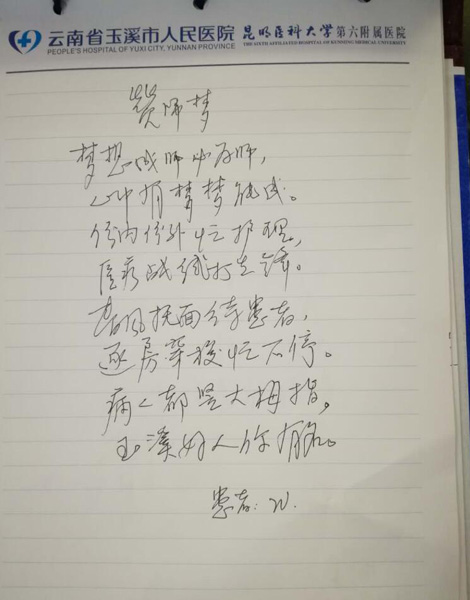 云南省玉溪市人民医院 昆明医科大学第六附属医院
PEOPLE'S HOSPITAL OF YUXI CITY, YUNNAN PROVINCE THE SIXTH AFFILIATED HOSPITAL OF KUNMING MEDICAL UNIVERSITY
赞师梦
梦想成师必有师,
心中有梦梦能成。
病内病外忙护理,
医疗战线打先锋。
春风抚面待患者,
逐房穿梭忙不停。
病人都竖大拇指,
玉溪好人你有名。
患者: